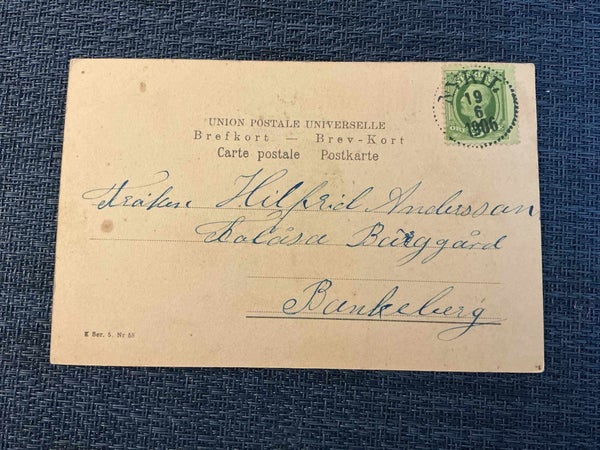 19
6
1906
ÖRE
UNION POSTALE UNIVERSELLE
Brefkort — Brev-Kort
Carte postale Postkarte
Fröken Hilfrid Andersson
Bärggård
Bankeberg
E Ser. 5. Nr 55